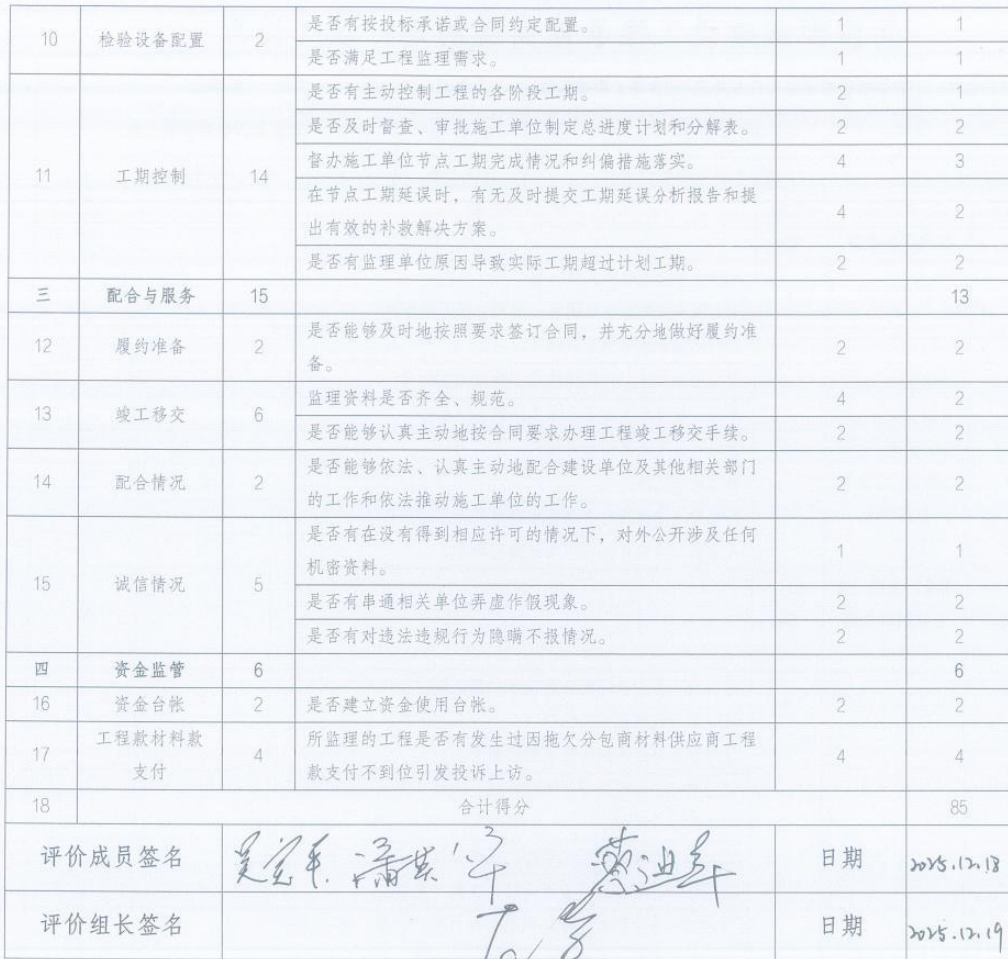 10 检验设备配置 2 是否有按投标承诺或合同约定配置。 1 1
是否满足工程监理需求。 1 1
11 工期控制 14 是否有主动控制工程的各阶段工期。 2 1
是否及时督查、审批施工单位制定总进度计划和分解表。 2 2
督办施工单位节点工期完成情况和纠偏措施落实。 4 3
在节点工期延误时，有无及时提交工期延误分析报告和提
出有效的补救解决方案。 4 2
是否有监理单位原因导致实际工期超过计划工期。 2 2
三 配合与服务 15 13
12 履约准备 2 是否能够及时地按照要求签订合同，并充分地做好履约准
备。 2 2
13 竣工移交 6 监理资料是否齐全、规范。 4 2
是否能够认真主动地按合同要求办理工程竣工移交手续。 2 2
14 配合情况 2 是否能够依法、认真主动地配合建设单位及其他相关部门
的工作和依法推动施工单位的工作。 2 2
15 诚信情况 5 是否有在没有得到相应许可的情况下，对外公开涉及任何
机密资料。 1 1
是否有串通相关单位弄虚作假现象。 2 2
是否有对违法违规行为隐瞒不报情况。 2 2
四 资金监管 6 6
16 资金台帐 2 是否建立资金使用台帐。 2 2
17 工程款材料款
支付 4 所监理的工程是否有发生过因拖欠分包商材料供应商工程
款支付不到位引发投诉上访。 4 4
18 合计得分 85
评价成员签名 日期 2025.12.18
评价组长签名 日期 2025.12.19